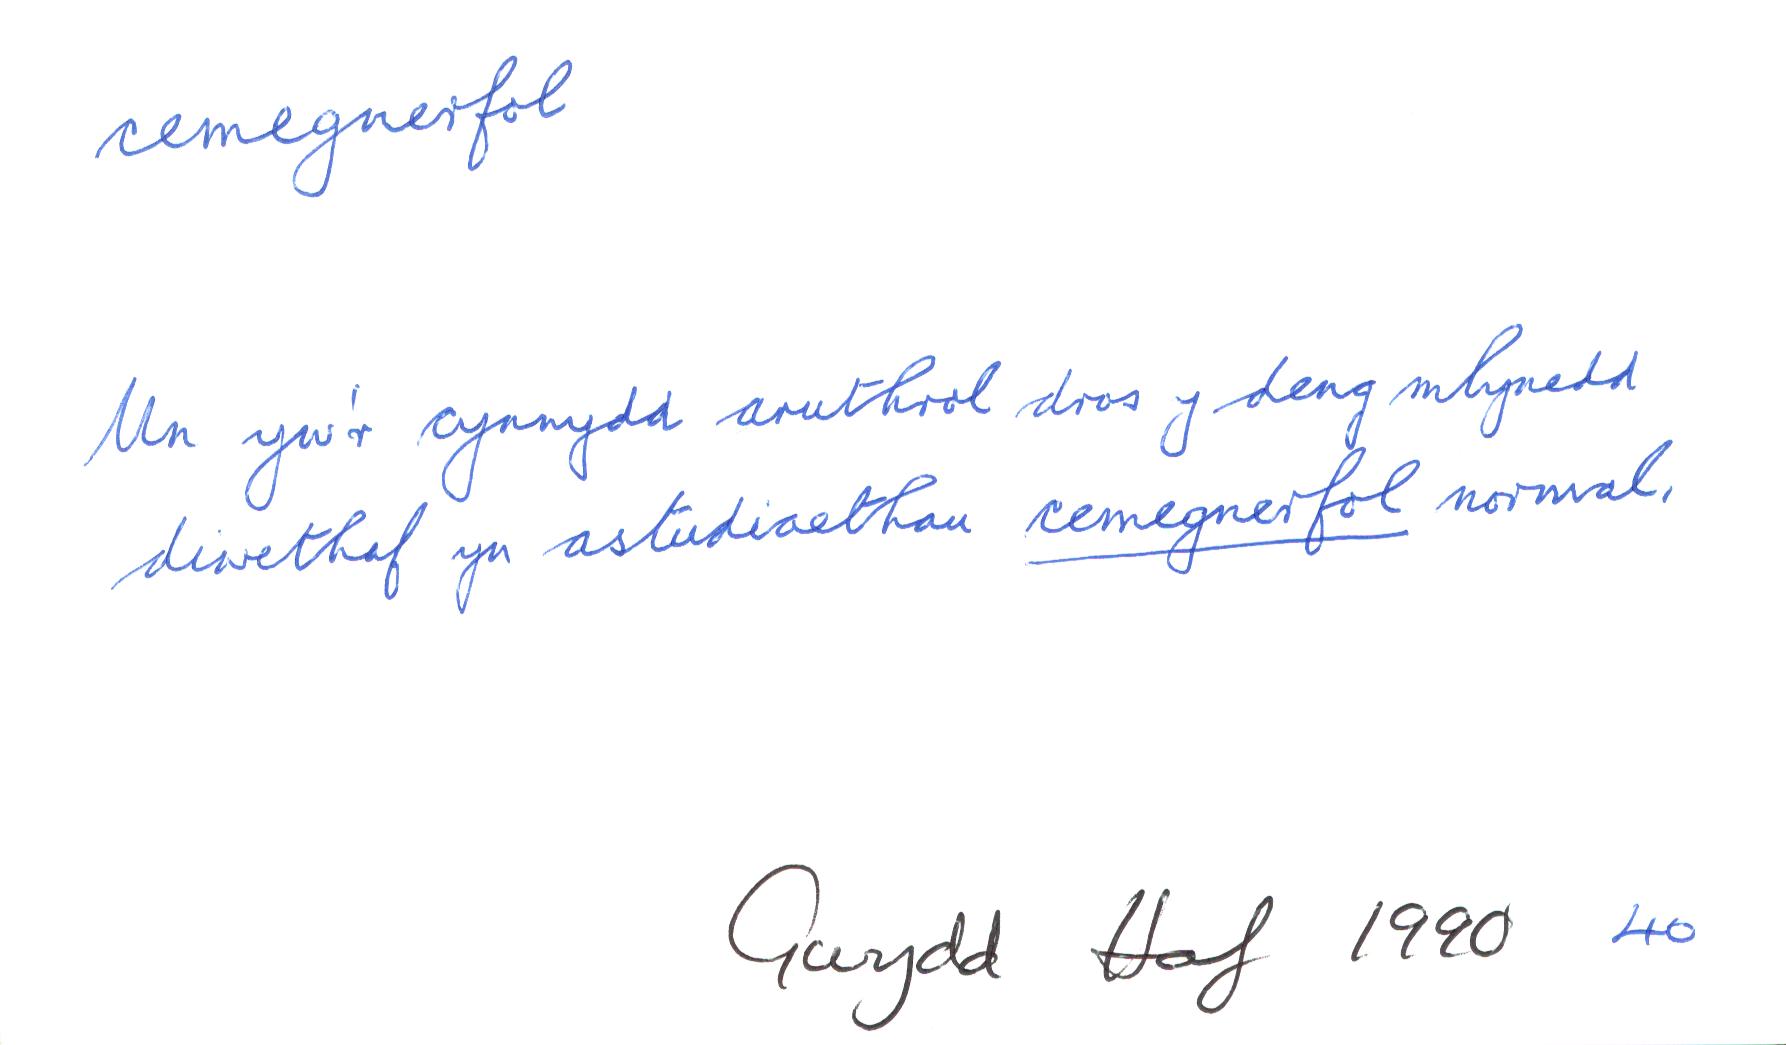 cemegnerfol
Un yw'r cynnydd aruthrol dros y deng mlynedd
diwethaf yn astudiaethau cemegnerfol normal.
Gwydd Haf 1990 40